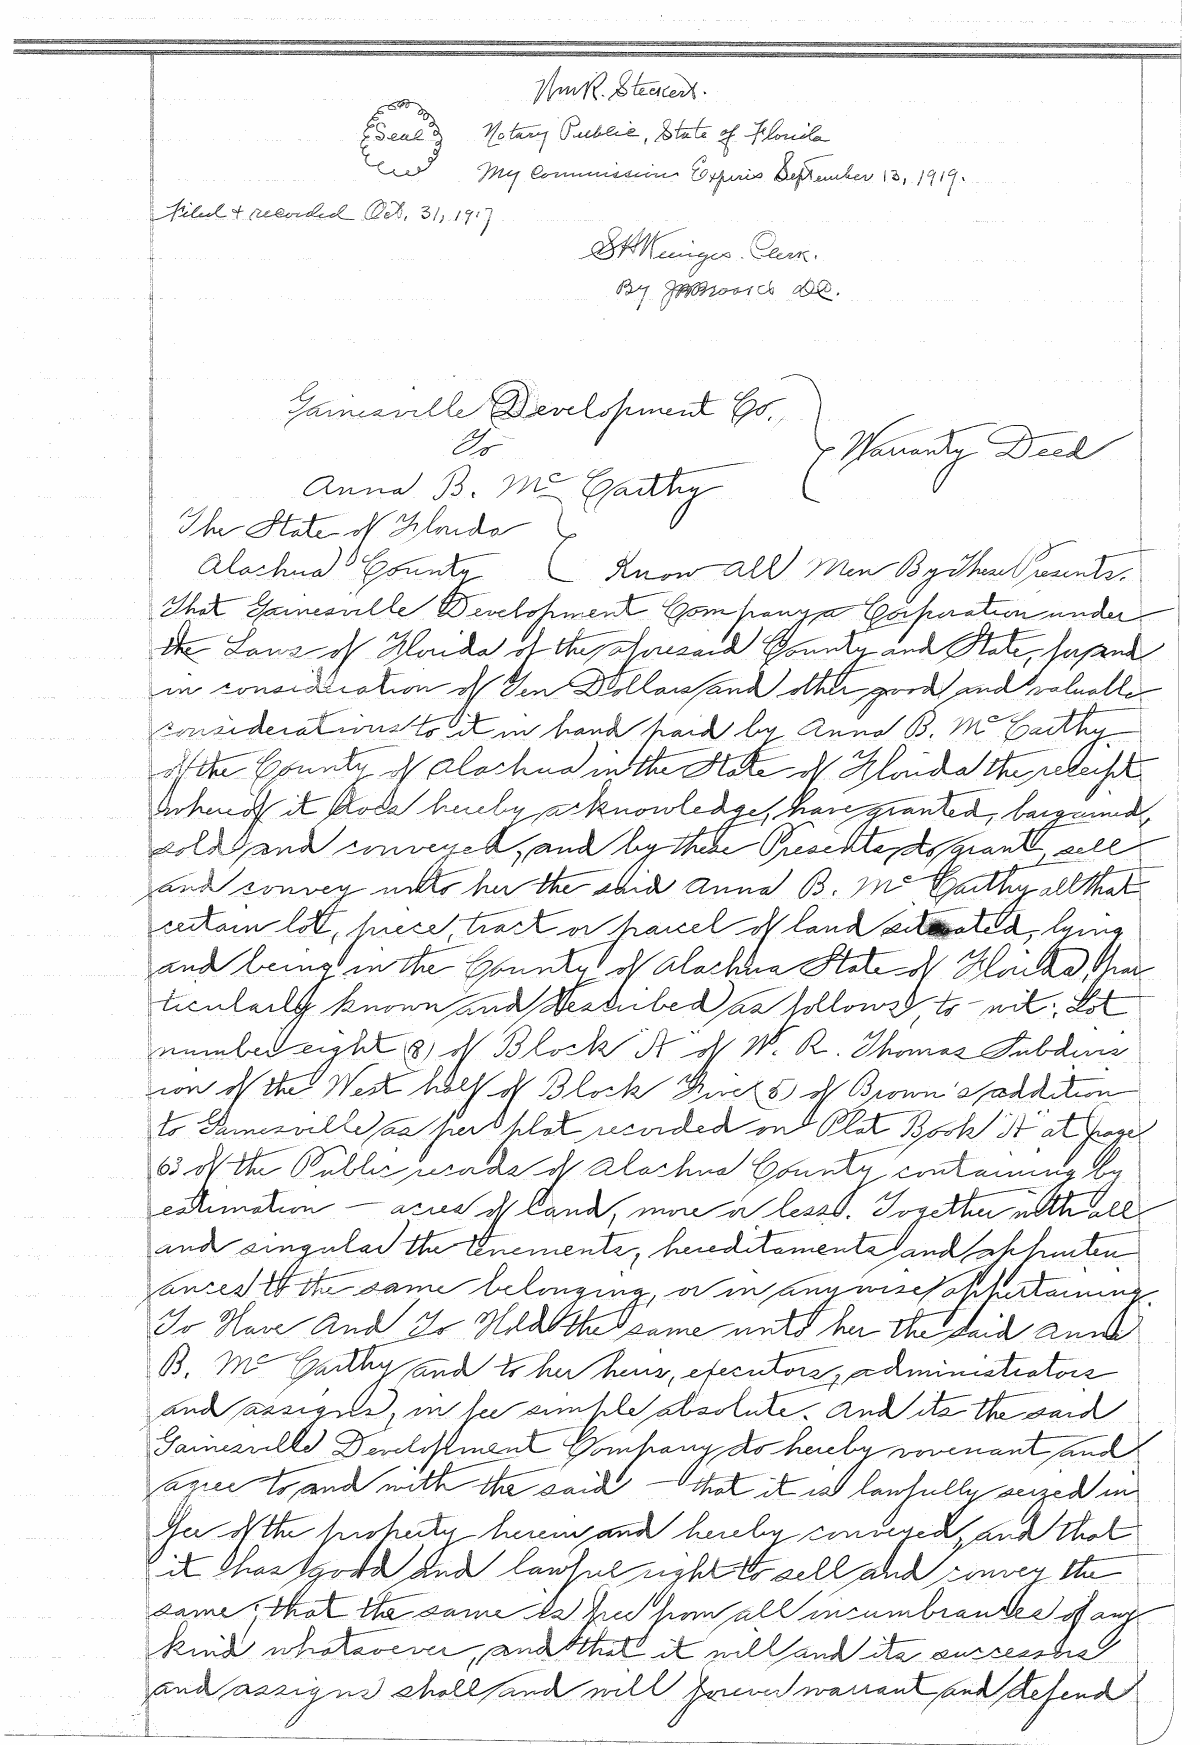 Wm R. Steckert.
Seal
Notary Public, State of Florida
My Commission Expires September 13, 1919.
Filed & recorded Oct. 31, 1917
S H Wienges. Clerk.
By D.C.
Gainesville Development Co.,
To
Warranty Deed
Anna B. McCarthy
The State of Florida
Alachua County Know All Men By These Presents.
That Gainesville Development Company a Corporation under
the Laws of Florida of the aforesaid County and State, for and
in consideration of Ten Dollars and other good and valuable
considerations to it in hand paid by Anna B. McCarthy
of the County of Alachua in the State of Florida the receipt
whereof it does hereby acknowledge, have granted, bargained,
sold and conveyed, and by these Presents do grant, sell
and convey unto her the said Anna B. McCarthy all that
certain lot, piece, tract or parcel of land situated, lying
and being in the County of Alachua State of Florida, par
ticularly known and described as follows, to-wit: Lot
number eight (8) of Block "A" of W. R. Thomas Subdivis
ion of the West half of Block Five (5) of Brown's addition
to Gainesville as per plat recorded on Plat Book "A" at page
63 of the Public records of Alachua County containing by
estimation — acres of land, more or less. Together with all
and singular the tenements, hereditaments and appurten
ances to the same belonging, or in anywise appertaining.
To Have And To Hold the same unto her the said Anna
B. McCarthy and to her heirs, executors, administrators
and assigns, in fee simple absolute. And its the said
Gainesville Development Company do hereby covenant and
agree to and with the said — that it is lawfully seized in
fee of the property herein and hereby conveyed, and that
it has good and lawful right to sell and convey the
same; that the same is free from all incumbrances of any
kind whatsoever, and that it will and its successors
and assigns shall and will forever warrant and defend